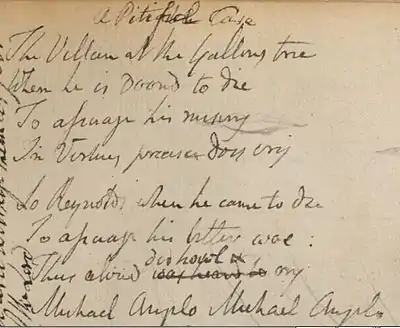 A Pitiful Case
The Villain at the Gallows tree
When he is Doomd to die
To assuage his misery
In Virtues praise does cry
So Reynolds when he came to die
To assuage his bitter woe:
did howl &
Thus aloud was heard to cry
Michael Angelo Michael Angelo